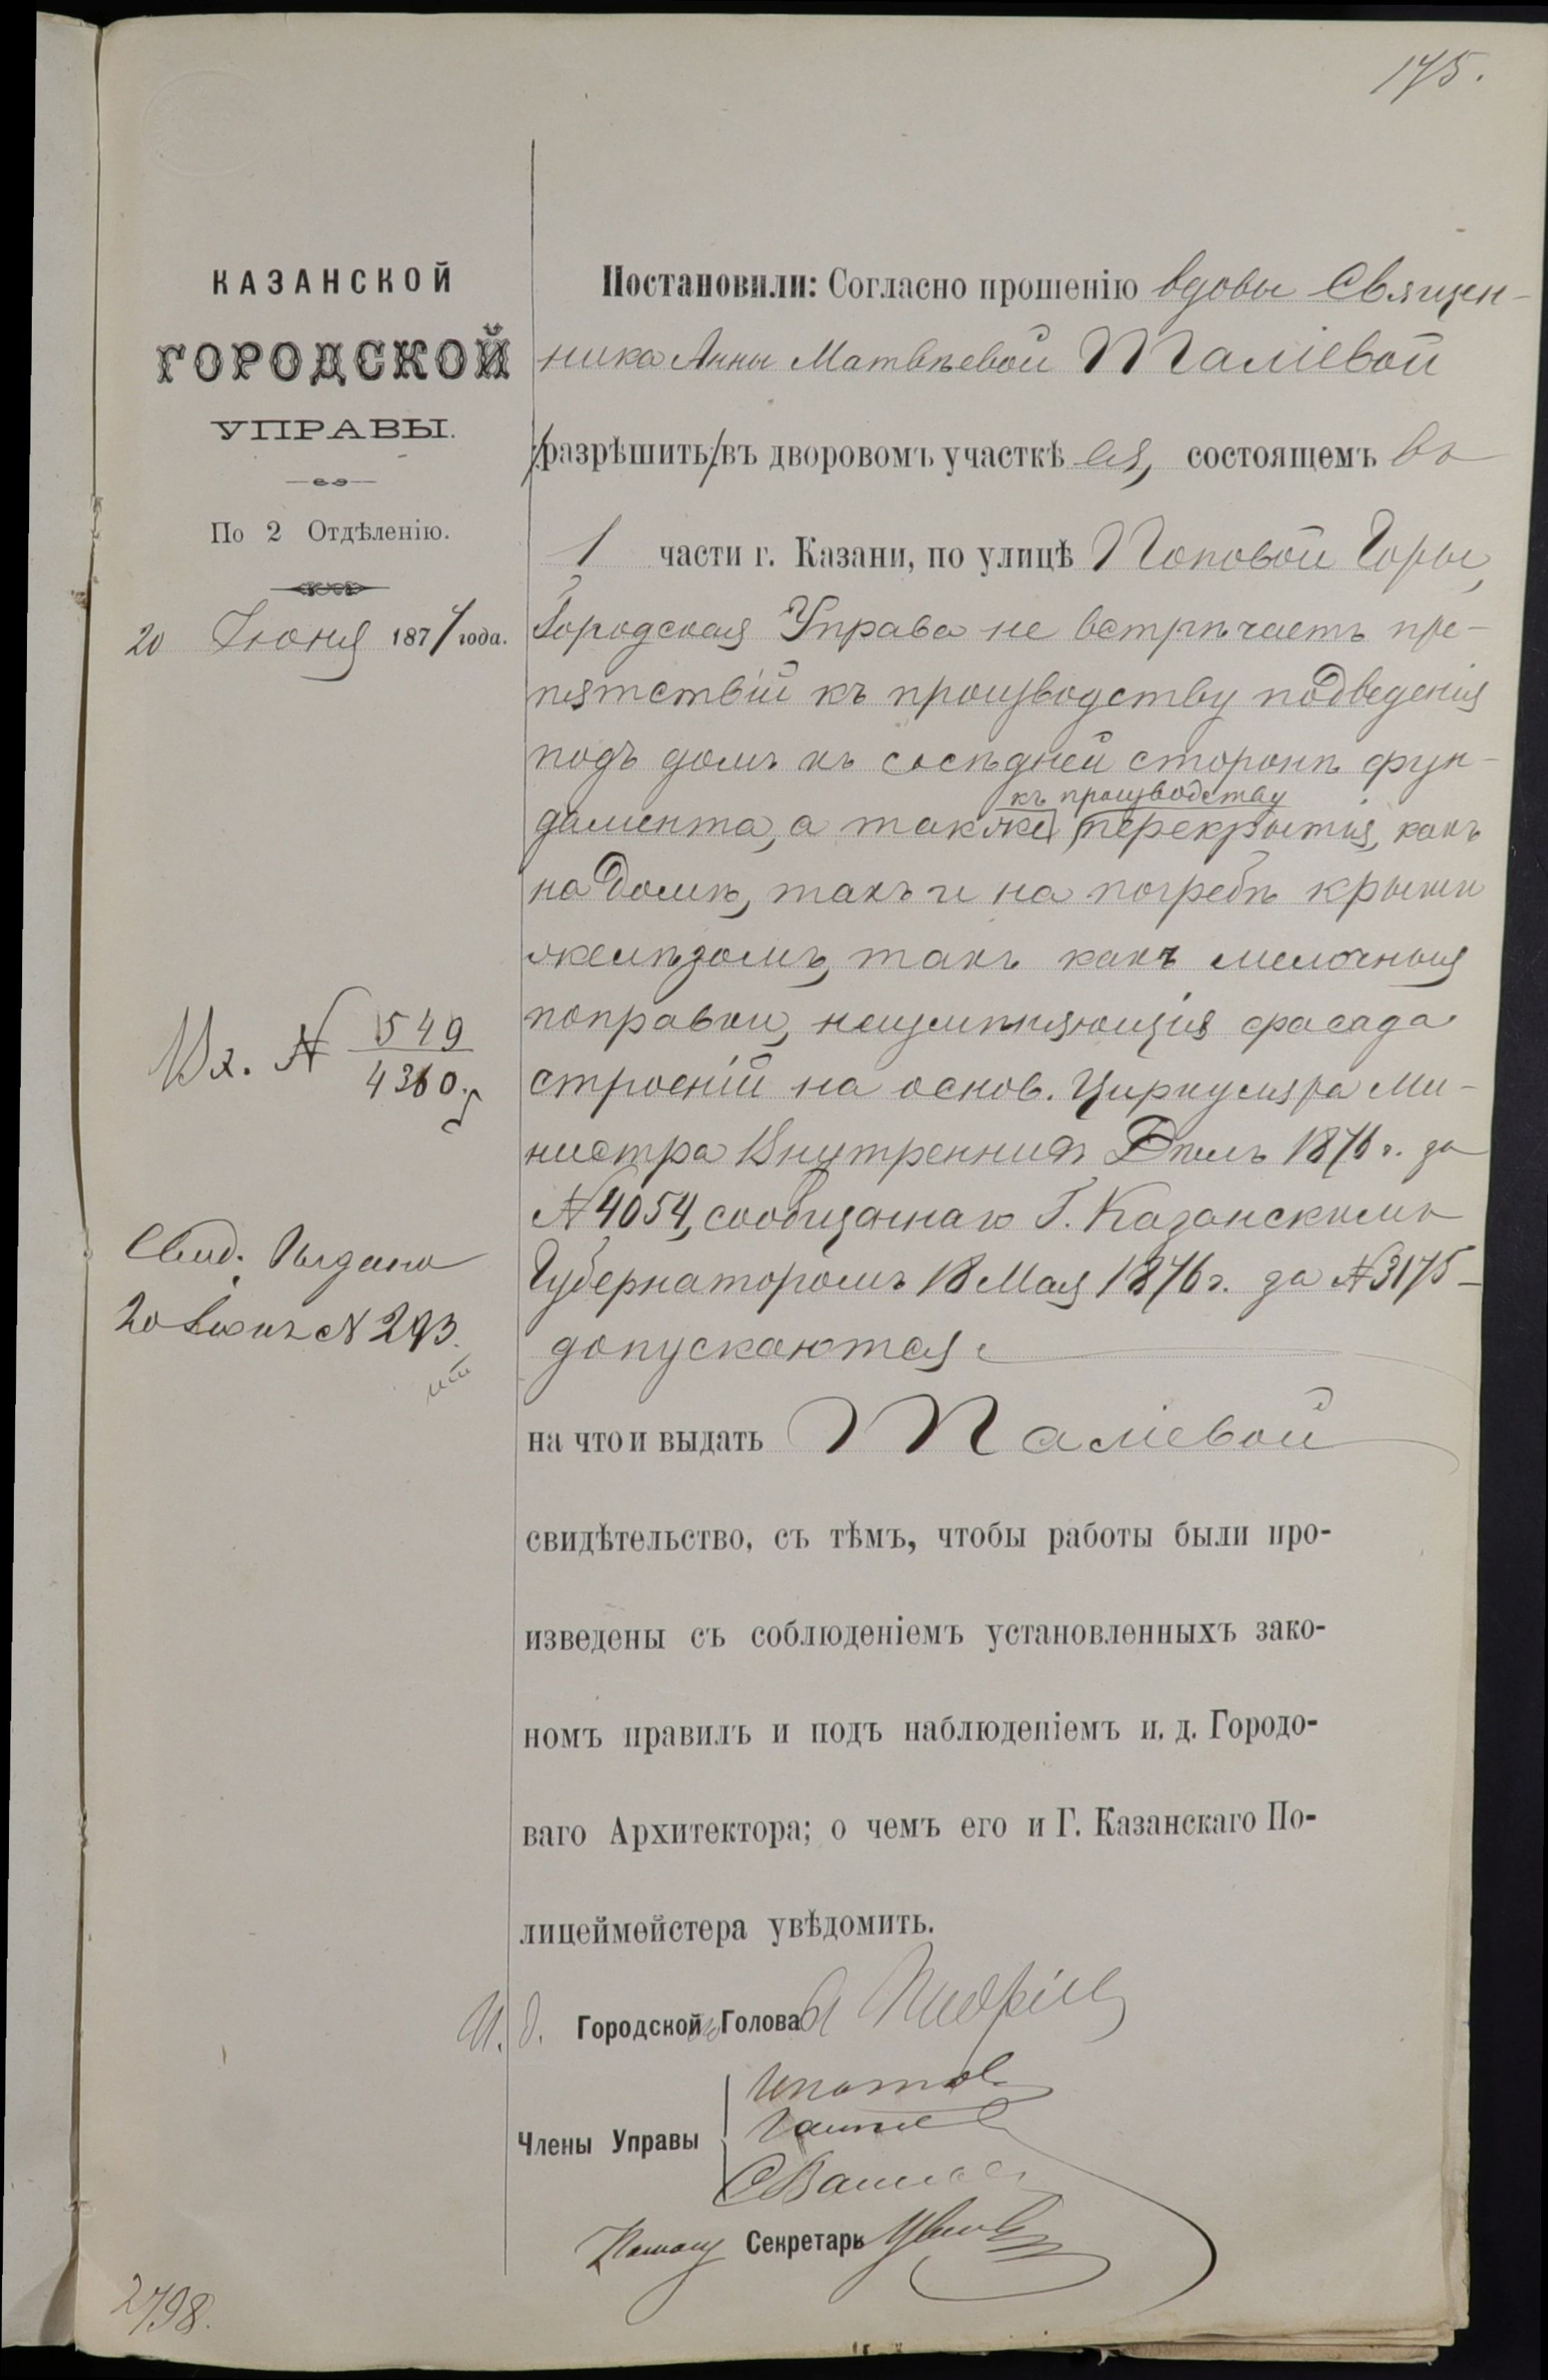 175.
КАЗАНСКОЙ
ГОРОДСКОЙ
УПРАВЫ.
По 2 Отдѣленію.
20 Іюня 1877 года.
Вх. № 549
4360.
Свид. выдано
20 Іюня № 293.
Постановили: Согласно прошенію вдовы Священ-
ника Анны Матвѣевой Таліевой
/разрѣшить/ въ дворовомъ участкѣ ея, состоящемъ въ
1 части г. Казани, по улицѣ Поповой Горы,
Городская Управа не встрѣчаетъ пре-
пятствій къ производству подведенія
подъ домъ къ сосѣдней сторонѣ фун-
къ производству
дамента, а также перекрытія, какъ
на домѣ, такъ и на погребѣ крыши
желѣзомъ, такъ какъ мелочныя
поправки, неизмѣняющія фасада
строеній на основ. Циркуляра Ми-
нистра Внутреннихъ Дѣлъ 1876 г. за
№ 4054, сообщеннаго Г. Казанскимъ
Губернаторомъ 18 Мая 1876 г. за № 3175 –
допускаются.
на что и выдать Таліевой
свидѣтельство, съ тѣмъ, чтобы работы были про-
изведены съ соблюденіемъ установленныхъ зако-
номъ правилъ и подъ наблюденіемъ и. д. Городо-
ваго Архитектора; о чемъ его и Г. Казанскаго По-
лицеймейстера увѣдомить.
И. д. Городской Голова
Члены Управы
Секретарь
2798.